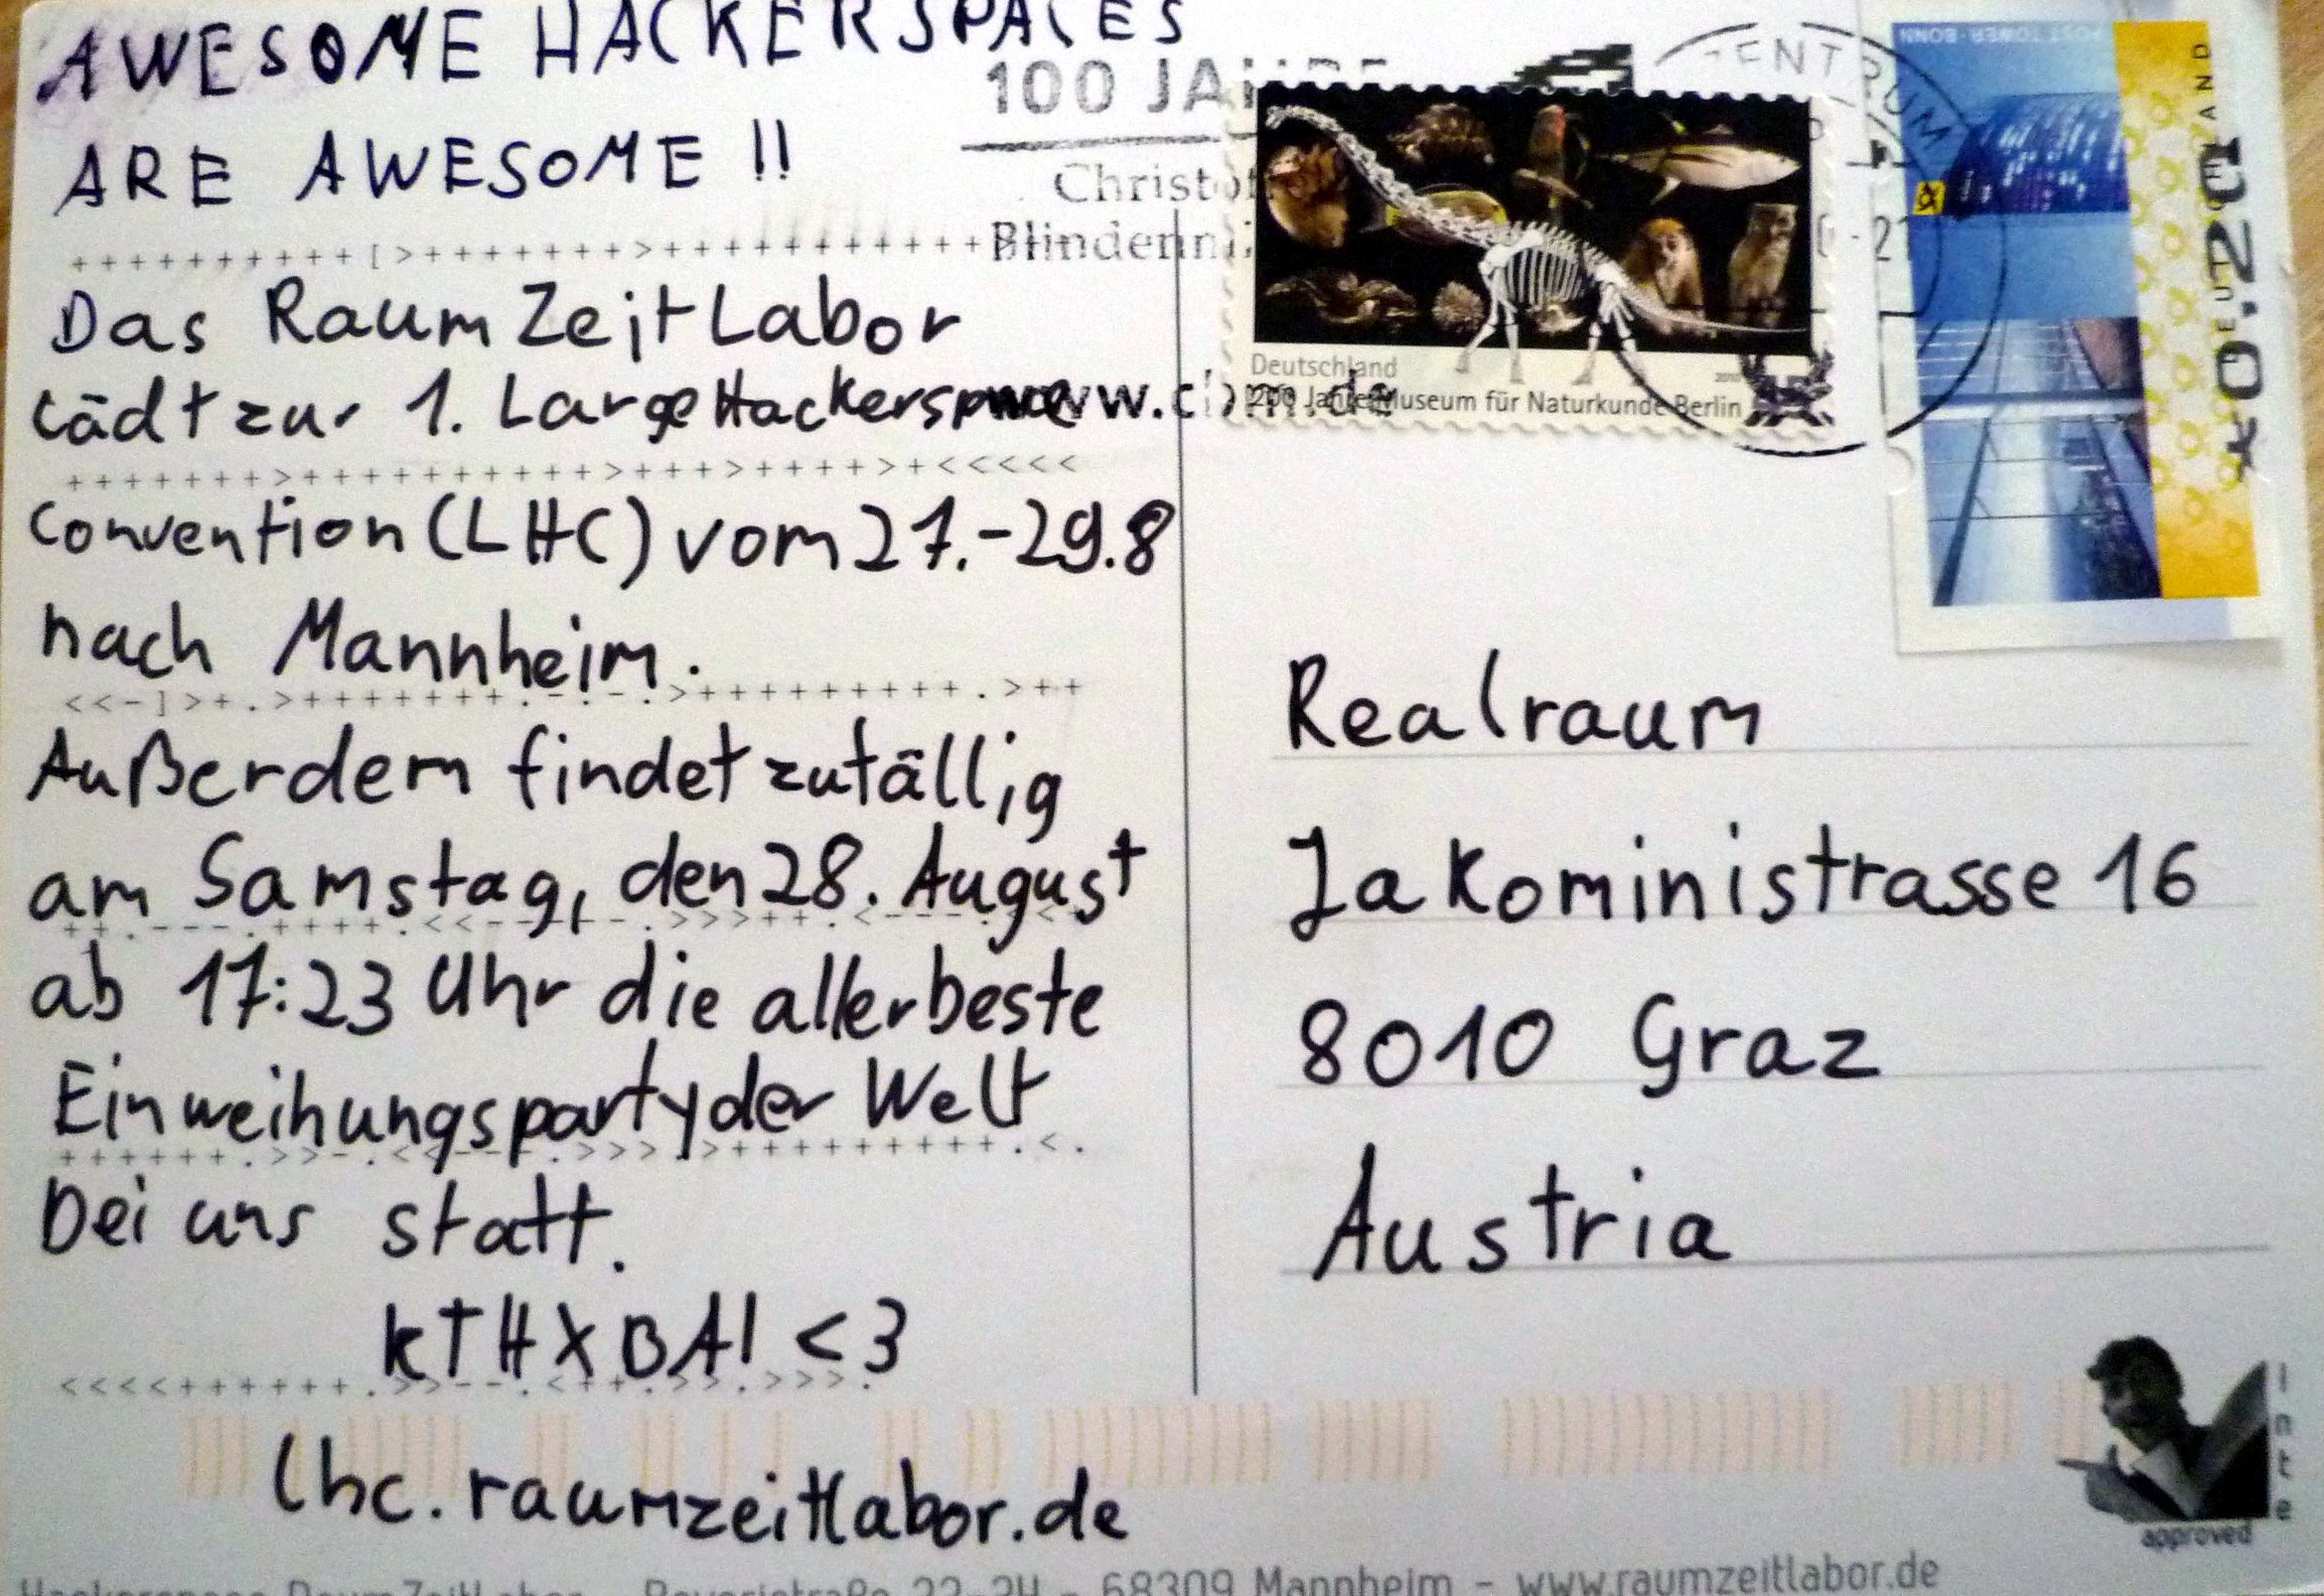 AWESOME HACKERSPACES
ARE AWESOME !!
++++++++++[>+++++++>++++++++++
Das RaumZeitLabor
lädt zur 1. Large Hackerspace
+++++++>+++++++++++>+++>++++>+<<<<<
Convention (LHC) vom 27.-29.8
nach Mannheim.
<<-]>+.>+++++++.-.-.>++++++++++.>++
Außerdem findet zufällig
am Samstag, den 28. August
ab 17:23 Uhr die allerbeste
Einweihungsparty der Welt
bei uns statt.
KTHXBAI <3
lhc.raumzeitlabor.de
100 JAHRE
www.cbm.de
ZENTRUM
-21
Deutschland
200 Jahre Museum für Naturkunde Berlin
POST TOWER · BONN
DEUTSCHLAND
*0.20
Realraum
Jakoministrasse 16
8010 Graz
Austria
Inte
approved
68309 Mannheim - www.raumzeitlabor.de